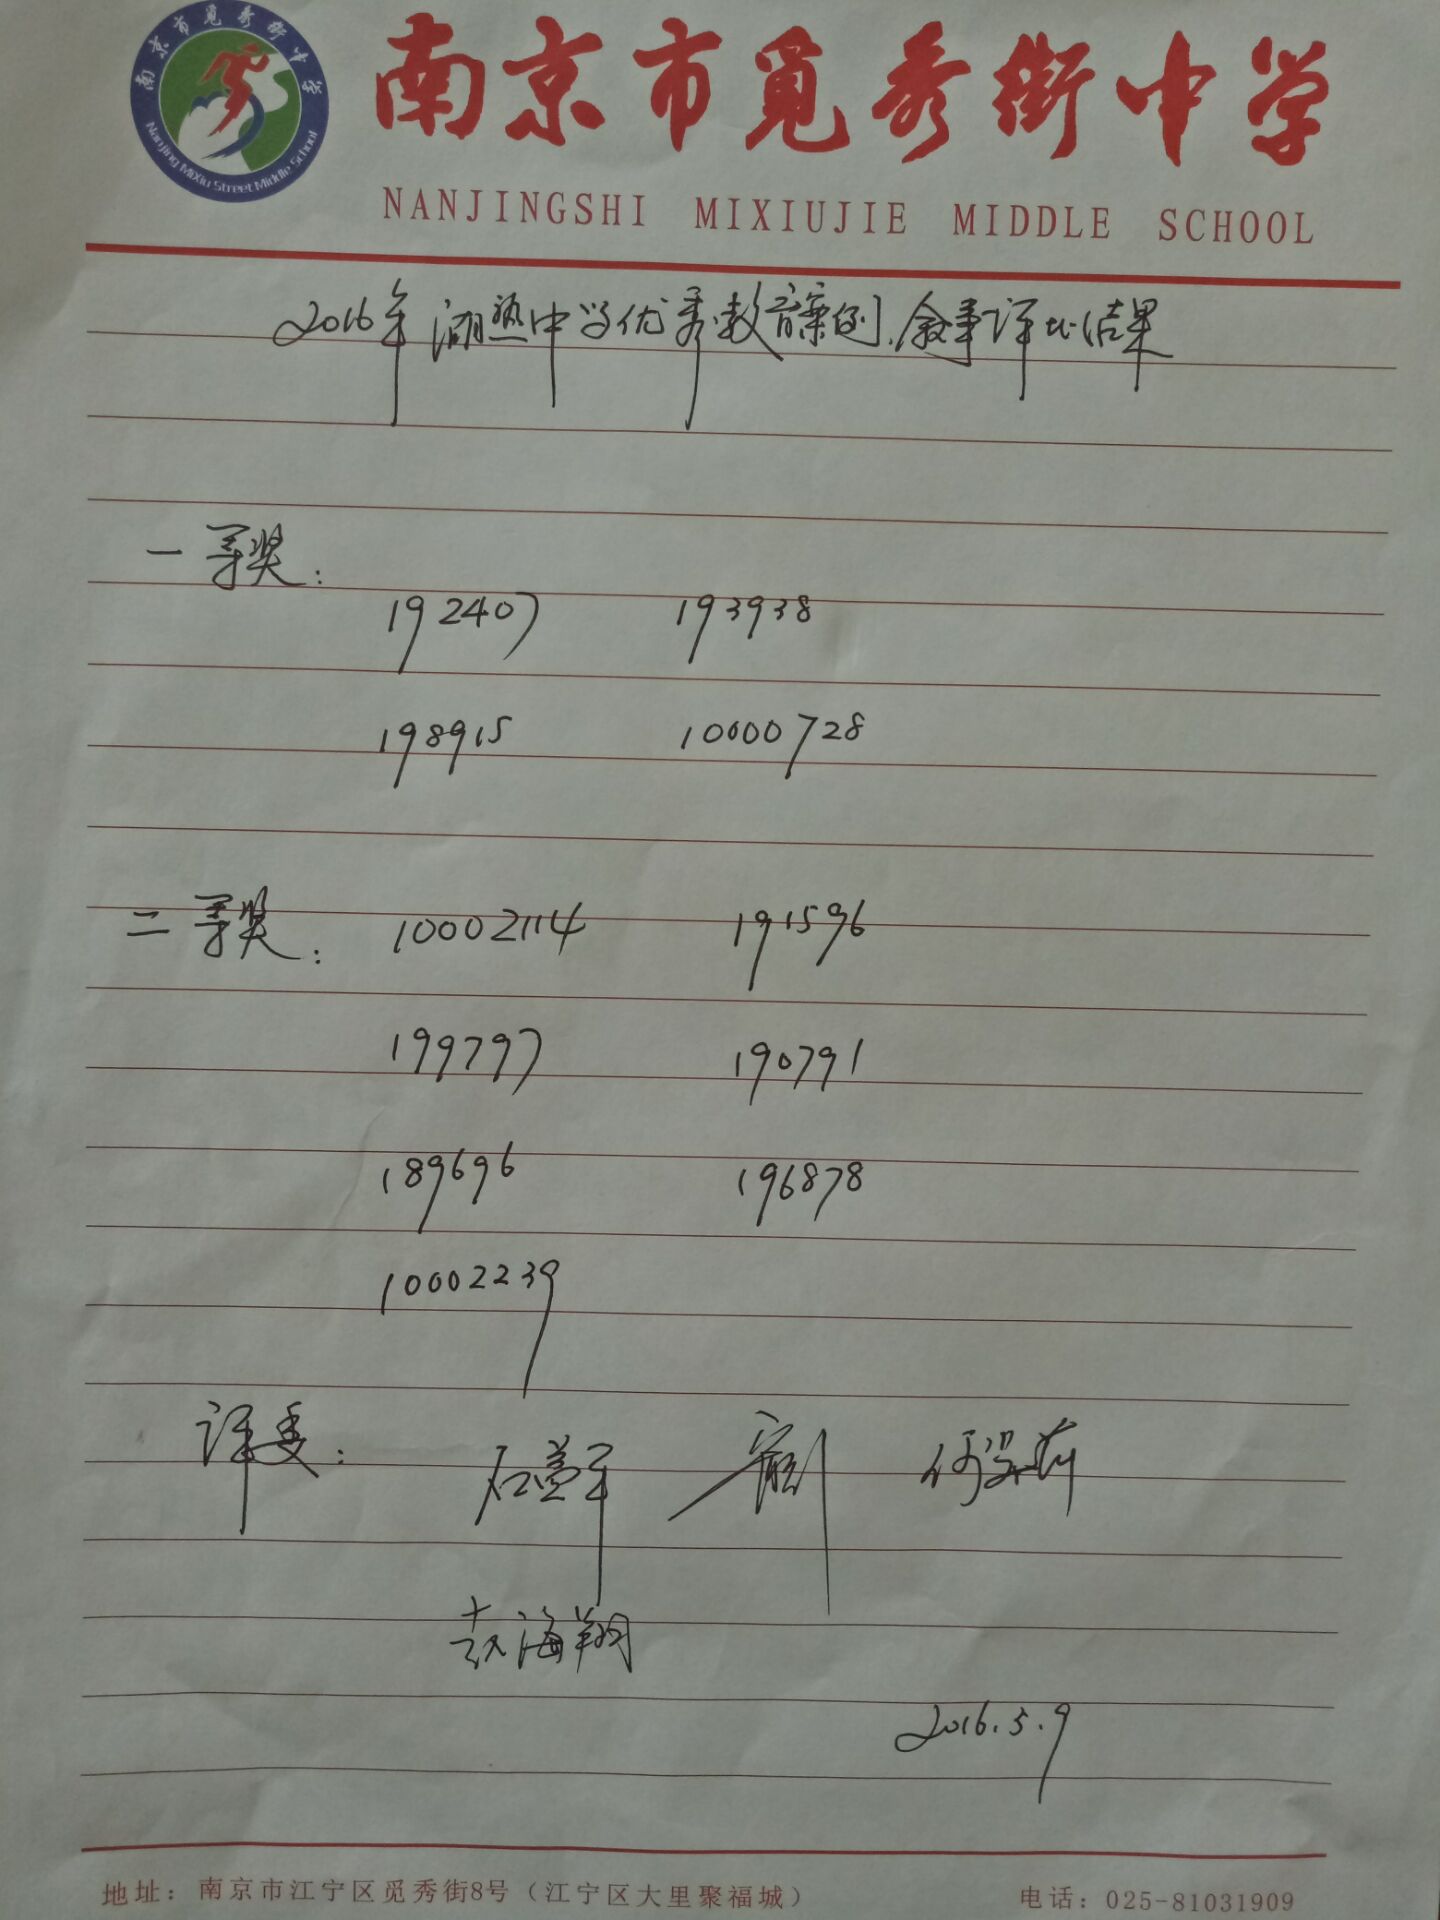 南京市觅秀街中学
Nanjing MiXiu Street Middle School
南京市觅秀街中学
NANJINGSHI MIXIUJIE MIDDLE SCHOOL
2016年湖熟中学优秀教育案例、叙事评比结果
一等奖：
192407 193938
198915 10000728
二等奖： 10002114 191596
199797 190791
189696 196878
10002239
评委：
海翔
2016.5.9
地址：南京市江宁区觅秀街8号（江宁区大里聚福城） 电话：025-81031909